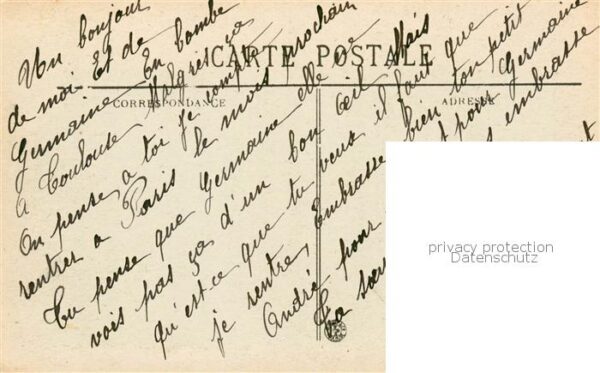 CARTE POSTALE
CORRESPONDANCE
ADRESSE
Un bonjour
de moi. Et de
Germaine. En bombe
a Toulouse, Malgrés ça
On pense a toi je compte
rentrer a Paris le mois prochain
Tu pense que Germaine elle ne
vois pas ça d'un bon œil Mais
qu'est-ce que tu veux il faut que
je rentre, Embrasse bien ton petit
André pour et pour Germaine
Ta sœur embrasse
privacy protection
Datenschutz